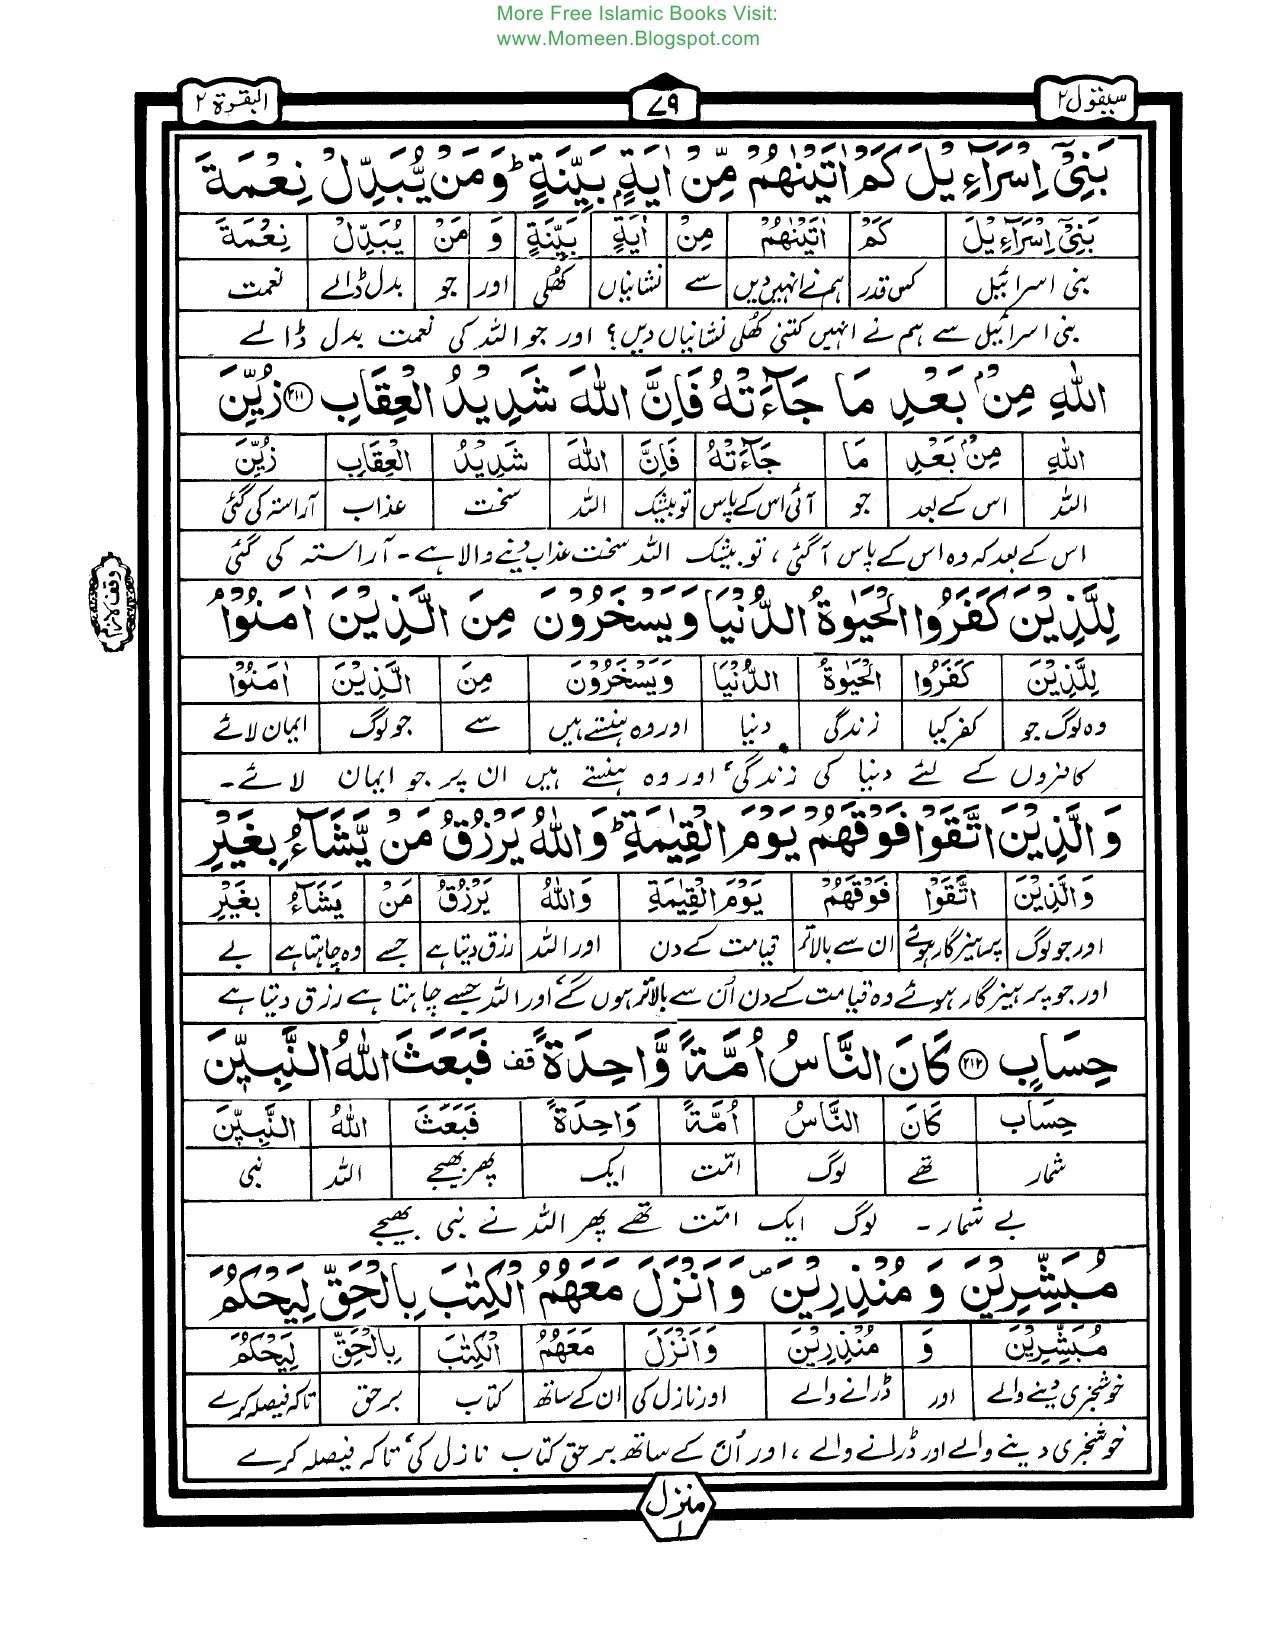 More Free Islamic Books Visit:
www.Momeen.Blogspot.com
سیقول ۲
۷۹
البقرة ۲
بَنِیْۤ اِسْرَآءِیْلَ كَمْ اٰتَیْنٰهُمْ مِّنْ اٰیَةٍۭ بَیِّنَةٍ ؕ وَ مَنْ یُّبَدِّلْ نِعْمَةَ
بَنِیْۤ اِسْرَآءِیْلَ كَمْ اٰتَیْنٰهُمْ مِنْ اٰیَةٍ بَیِّنَةٍ وَ مَنْ یُبَدِّلْ نِعْمَةَ
بنی اسرائیل کس قدر ہم نے انہیں دیں سے نشانیاں کھلی اور جو بدل ڈالے نعمت
بنی اسرائیل سے ہم نے انہیں کتنی کھلی نشانیاں دیں؟ اور جو اللہ کی نعمت بدل ڈالے
اللّٰهِ مِنْۢ بَعْدِ مَا جَآءَتْهُ فَاِنَّ اللّٰهَ شَدِیْدُ الْعِقَابِ ﴿۲۱۱﴾ زُیِّنَ
اللّٰهِ مِنْۢ بَعْدِ مَا جَآءَتْهُ فَاِنَّ اللّٰهَ شَدِیْدُ الْعِقَابِ زُیِّنَ
اللہ اس کے بعد جو آئی اس کے پاس تو بیشک اللہ سخت عذاب آراستہ کی گئی
اس کے بعد کہ وہ اس کے پاس آ گئی ، تو بیشک اللہ سخت عذاب دینے والا ہے ۔ آراستہ کی گئی
وقف لازم
لِلَّذِیْنَ كَفَرُوا الْحَیٰوةُ الدُّنْیَا وَ یَسْخَرُوْنَ مِنَ الَّذِیْنَ اٰمَنُوْا ۘ
لِلَّذِیْنَ كَفَرُوا الْحَیٰوةُ الدُّنْیَا وَیَسْخَرُوْنَ مِنَ الَّذِیْنَ اٰمَنُوْا
وہ لوگ جو کفر کیا زندگی دنیا اور وہ ہنستے ہیں سے جو لوگ ایمان لائے
کافروں کے لئے دنیا کی زندگی، اور وہ ہنستے ہیں ان پر جو ایمان لائے۔
وَ الَّذِیْنَ اتَّقَوْا فَوْقَهُمْ یَوْمَ الْقِیٰمَةِ ؕ وَ اللّٰهُ یَرْزُقُ مَنْ یَّشَآءُ بِغَیْرِ
وَالَّذِیْنَ اتَّقَوْا فَوْقَهُمْ یَوْمَ الْقِیٰمَةِ وَاللّٰهُ یَرْزُقُ مَنْ یَشَآءُ بِغَیْرِ
اور جو لوگ پرہیزگار ہوئے ان سے بالاتر قیامت کے دن اور اللہ رزق دیتا ہے جسے وہ چاہتا ہے بے
اور جو پرہیزگار ہوئے وہ قیامت کے دن اُن سے بالاتر ہوں گے، اور اللہ جسے چاہتا ہے رزق دیتا ہے
حِسَابٍ ﴿۲۱۲﴾ كَانَ النَّاسُ اُمَّةً وَّاحِدَةً ۫ قف فَبَعَثَ اللّٰهُ النَّبِیّٖنَ
حِسَاب كَانَ النَّاسُ اُمَّةً وَاحِدَةً فَبَعَثَ اللّٰهُ النَّبِیّٖنَ
شمار تھے لوگ امّت ایک پھر بھیجے اللہ نبی
بے شمار ۔ لوگ ایک امّت تھے پھر اللہ نے نبی بھیجے
مُبَشِّرِیْنَ وَ مُنْذِرِیْنَ ۪ وَ اَنْزَلَ مَعَهُمُ الْكِتٰبَ بِالْحَقِّ لِیَحْكُمَ
مُبَشِّرِیْنَ وَ مُنْذِرِیْنَ وَاَنْزَلَ مَعَهُمُ الْكِتٰبَ بِالْحَقِّ لِیَحْكُمَ
خوشخبری دینے والے اور ڈرانے والے اور نازل کی ان کے ساتھ کتاب برحق تاکہ فیصلہ کرے
خوشخبری دینے والے اور ڈرانے والے ، اور اُن کے ساتھ برحق کتاب نازل کی، تاکہ فیصلہ کرے
منزل ۱